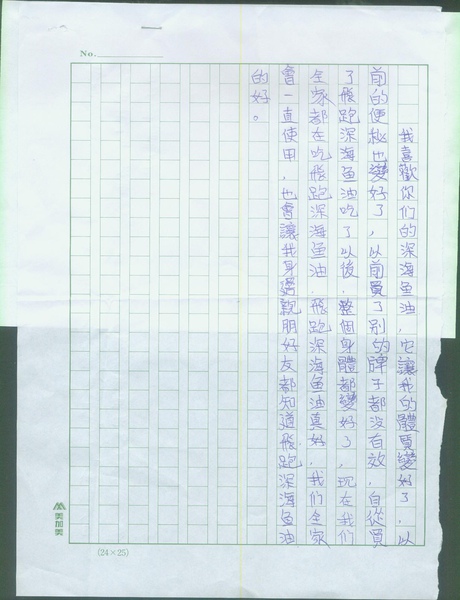 No.
我喜歡你们的深海鱼油,它讓我的體質變好了,以
前的便秘也變好了,以前買了別的牌子都沒有效,自從買
了飛跑深海鱼油吃了以後,整個身體都變好了,現在我们
全家都在吃飛跑深海鱼油,飛跑深海鱼油真好,我们全家
會一直使用,也會讓我身邊親朋好友都知道飛跑深海鱼油
的好。
美加美
(24×25)